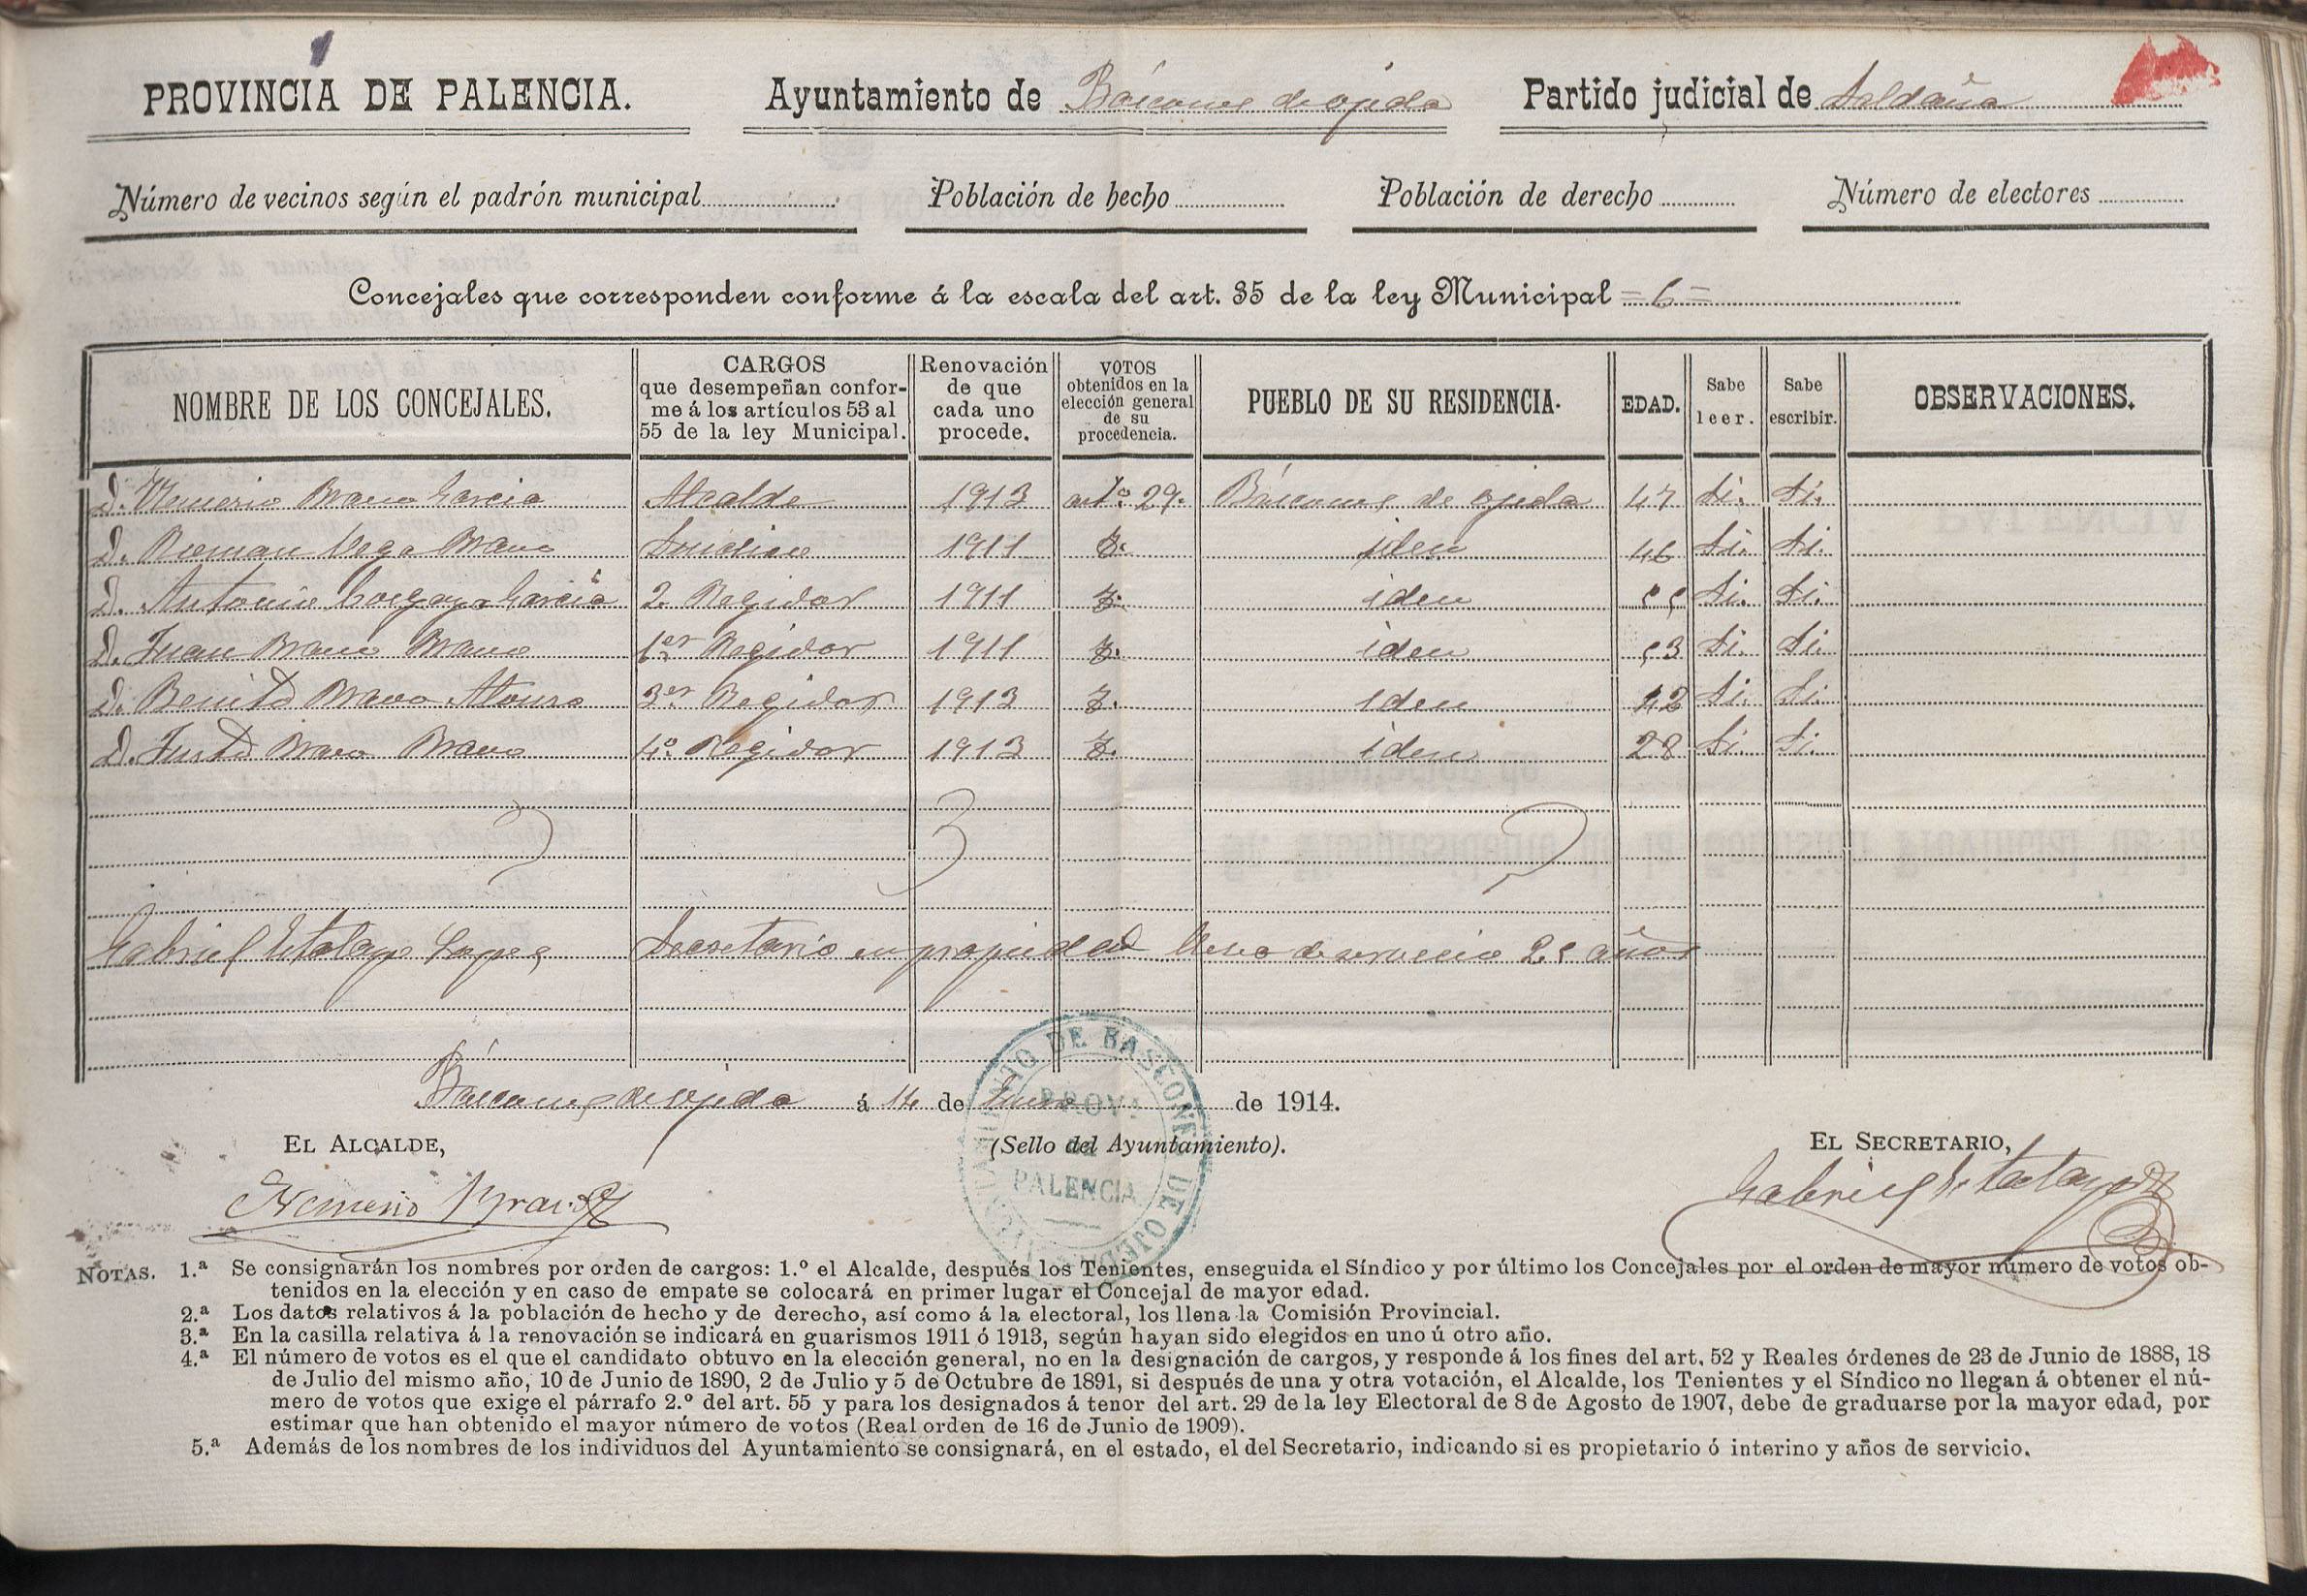 PROVINCIA DE PALENCIA. Ayuntamiento de Báscones de ojeda Partido judicial de Saldaña
Número de vecinos según el padrón municipal Población de hecho Población de derecho Número de electores
Concejales que corresponden conforme á la escala del art. 35 de la ley Municipal = 6 =
NOMBRE DE LOS CONCEJALES. CARGOS que desempeñan conforme á los artículos 53 al 55 de la ley Municipal. Renovación de que cada uno procede. VOTOS obtenidos en la elección general de su procedencia. PUEBLO DE SU RESIDENCIA. EDAD. Sabe leer. Sabe escribir. OBSERVACIONES.
D. Nemerio Bravo Garcia Alcalde 1913 arto. 29. Báscones de ojeda 47 Si. Si.
D. Roman Vega Bravo Sindico 1911 iden 46 Si. Si.
D. Antonio Garcia 2. Regidor 1911 iden 55 Si. Si.
D. Juan Bravo Bravo 1er Regidor 1911 iden 53 Si. Si.
D. Benito Bravo Alonso 3er Regidor 1913 iden 42 Si. Si.
D. Justo Bravo Bravo 4º. Regidor 1913 iden 28 Si. Si.
Gabriel Lopez Secretario en propiedad de servicio 25 años
Báscones de ojeda á 14 de Enero de 1914.
AYUNTAMIENTO DE BASCONES DE OJEDA
PROVA DE PALENCIA
EL ALCALDE, (Sello del Ayuntamiento). EL SECRETARIO,
Nemerio Bravo Gabriel
NOTAS. 1.ª Se consignarán los nombres por orden de cargos: 1.º el Alcalde, después los Tenientes, enseguida el Síndico y por último los Concejales por el orden de mayor número de votos ob-
tenidos en la elección y en caso de empate se colocará en primer lugar el Concejal de mayor edad.
2.ª Los datos relativos á la población de hecho y de derecho, así como á la electoral, los llena la Comisión Provincial.
3.ª En la casilla relativa á la renovación se indicará en guarismos 1911 ó 1913, según hayan sido elegidos en uno ú otro año.
4.ª El número de votos es el que el candidato obtuvo en la elección general, no en la designación de cargos, y responde á los fines del art. 52 y Reales órdenes de 23 de Junio de 1888, 18
de Julio del mismo año, 10 de Junio de 1890, 2 de Julio y 5 de Octubre de 1891, si después de una y otra votación, el Alcalde, los Tenientes y el Síndico no llegan á obtener el nú-
mero de votos que exige el párrafo 2.º del art. 55 y para los designados á tenor del art. 29 de la ley Electoral de 8 de Agosto de 1907, debe de graduarse por la mayor edad, por
estimar que han obtenido el mayor número de votos (Real orden de 16 de Junio de 1909).
5.ª Además de los nombres de los individuos del Ayuntamiento se consignará, en el estado, el del Secretario, indicando si es propietario ó interino y años de servicio.